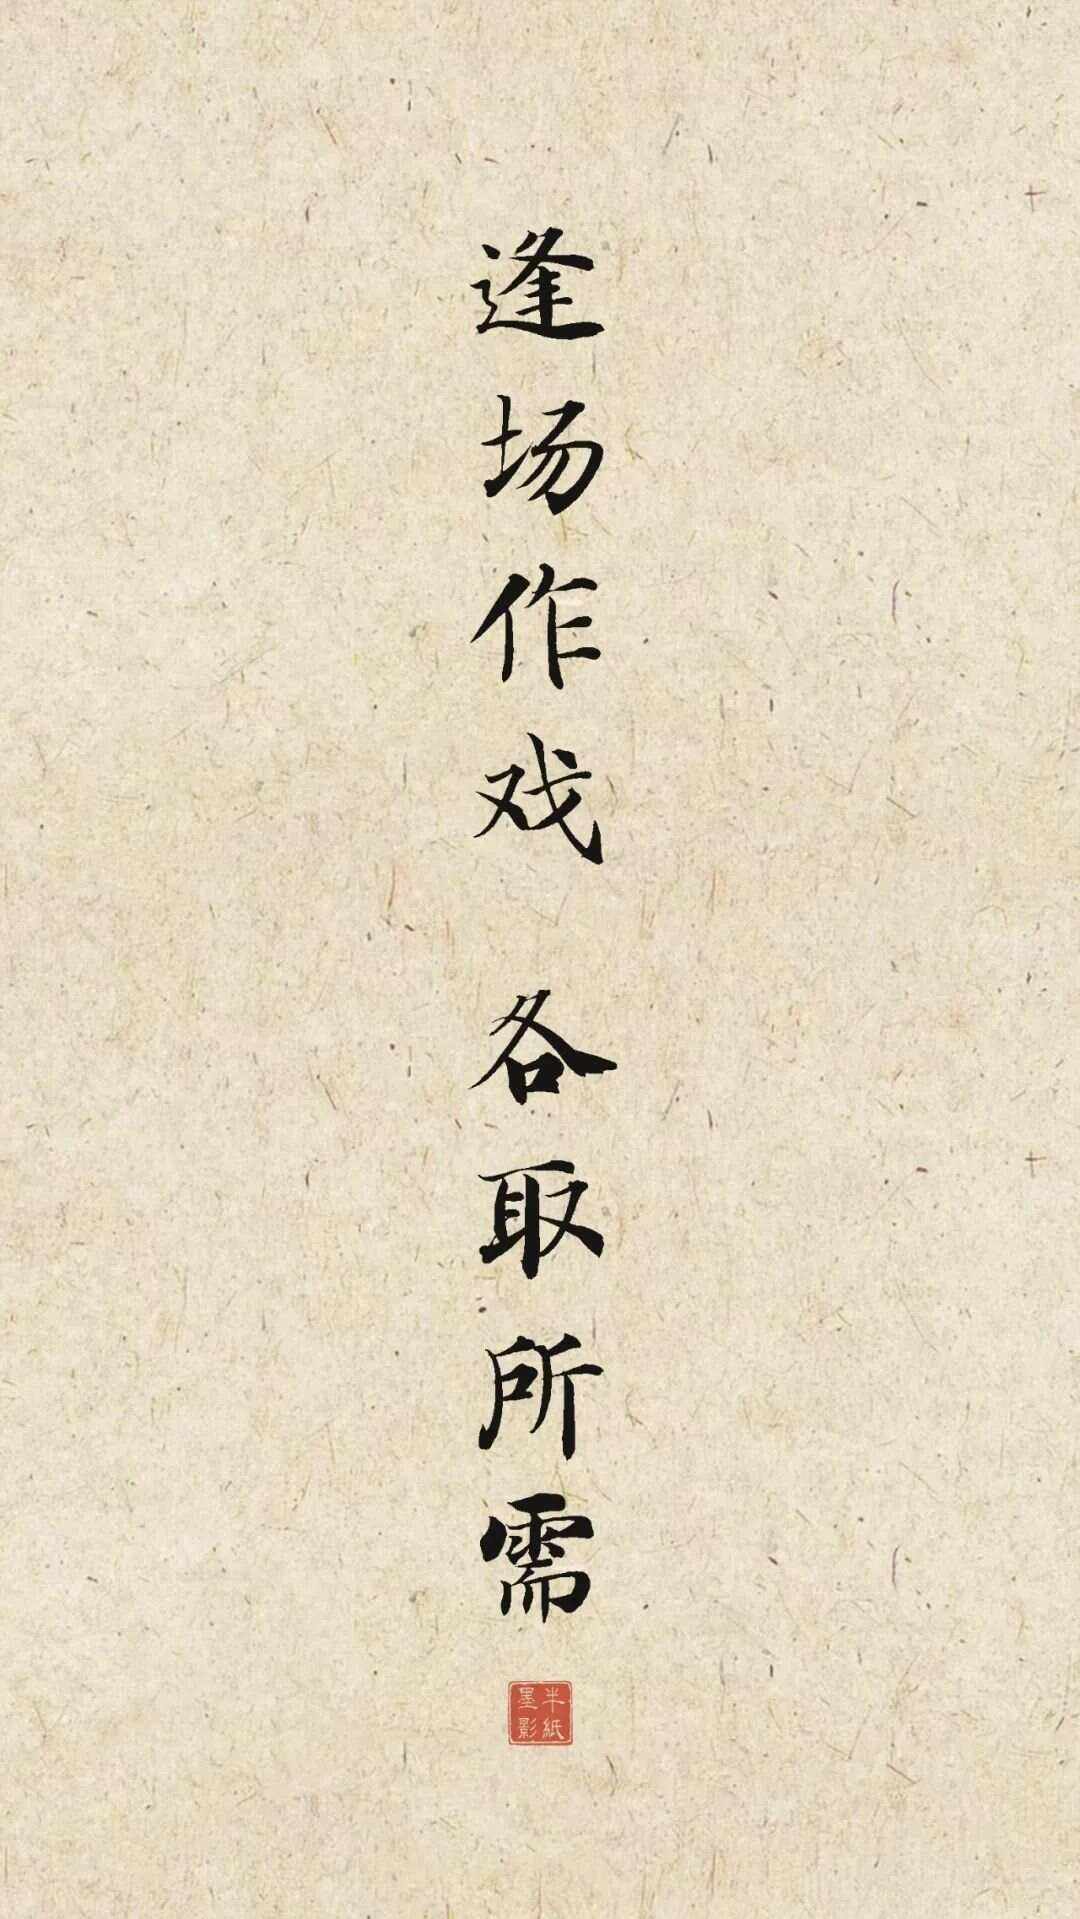 逢场作戏 各取所需
半纸
墨影